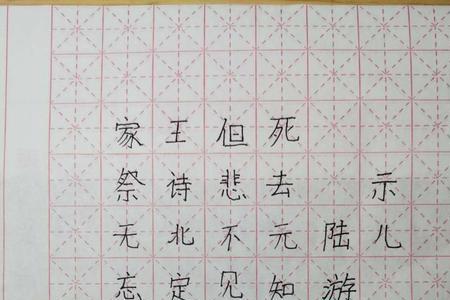 示儿
陆游
死去元知
但悲不见
王诗北定
家祭无忘